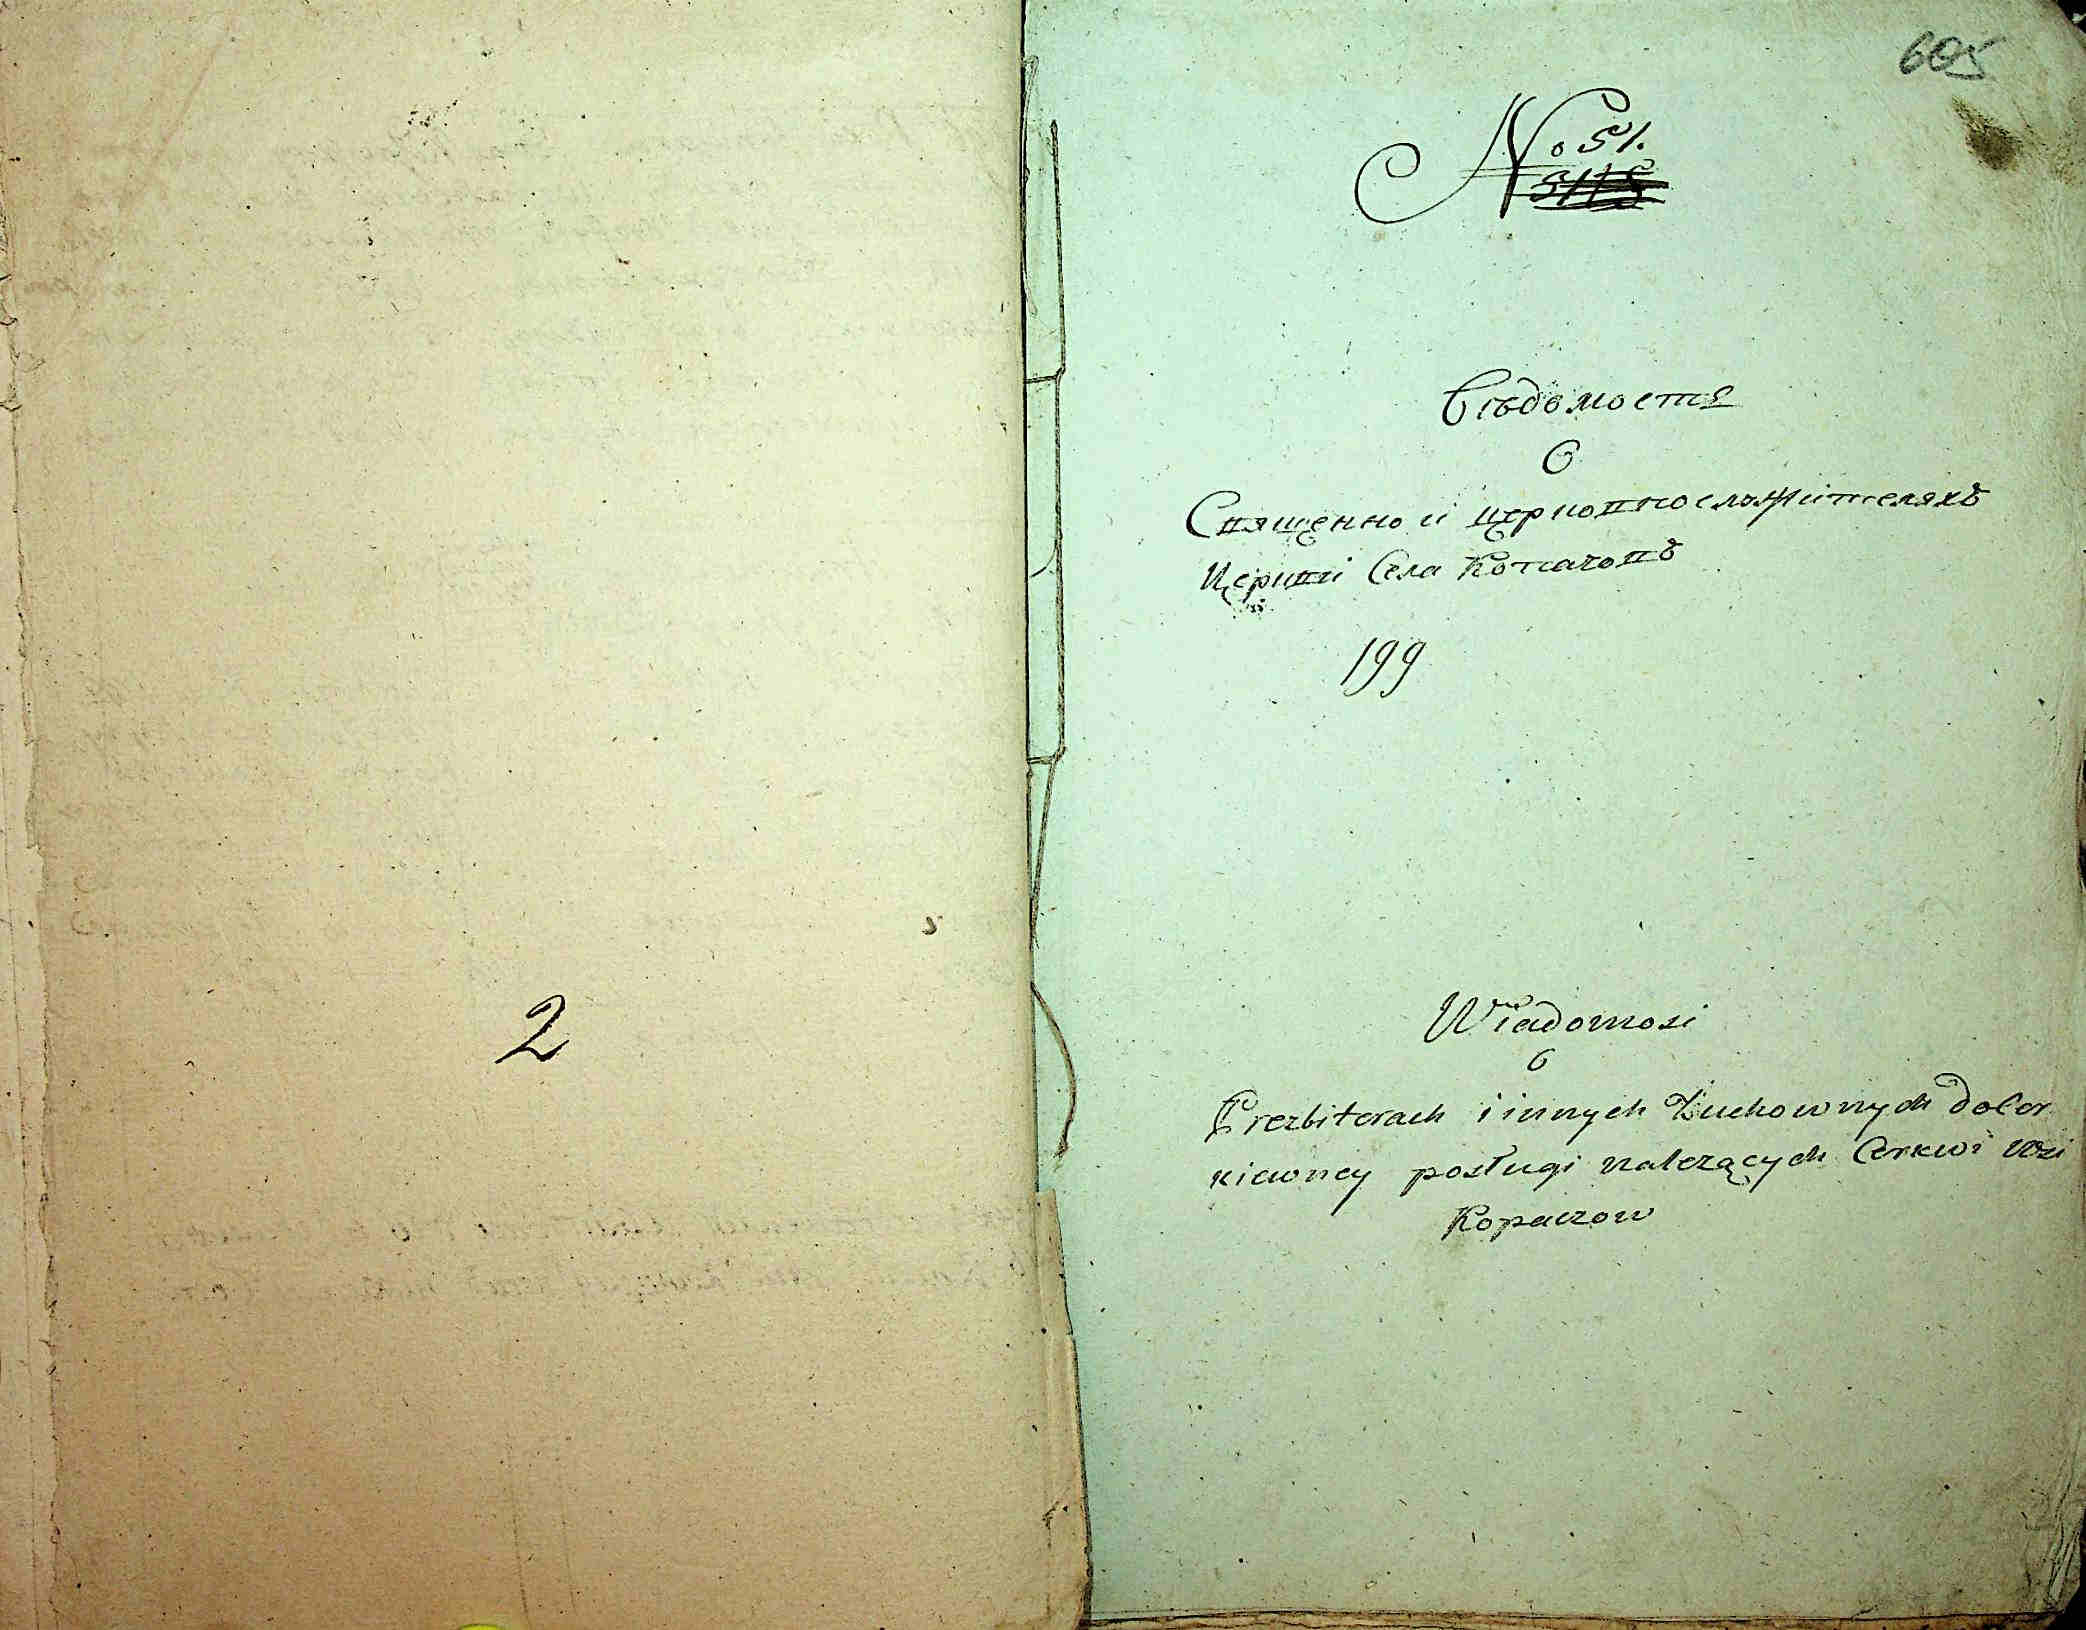 2
605
No 51.
Вѣдомость
О
Священно и церковнослужителяхъ
Церкви Села Копачовъ
199
Wiadomosi
o
Prezbiterach i innych Duchownych do Cer
kiewney posługi należących Cerkwi Wsi
Kopaczow